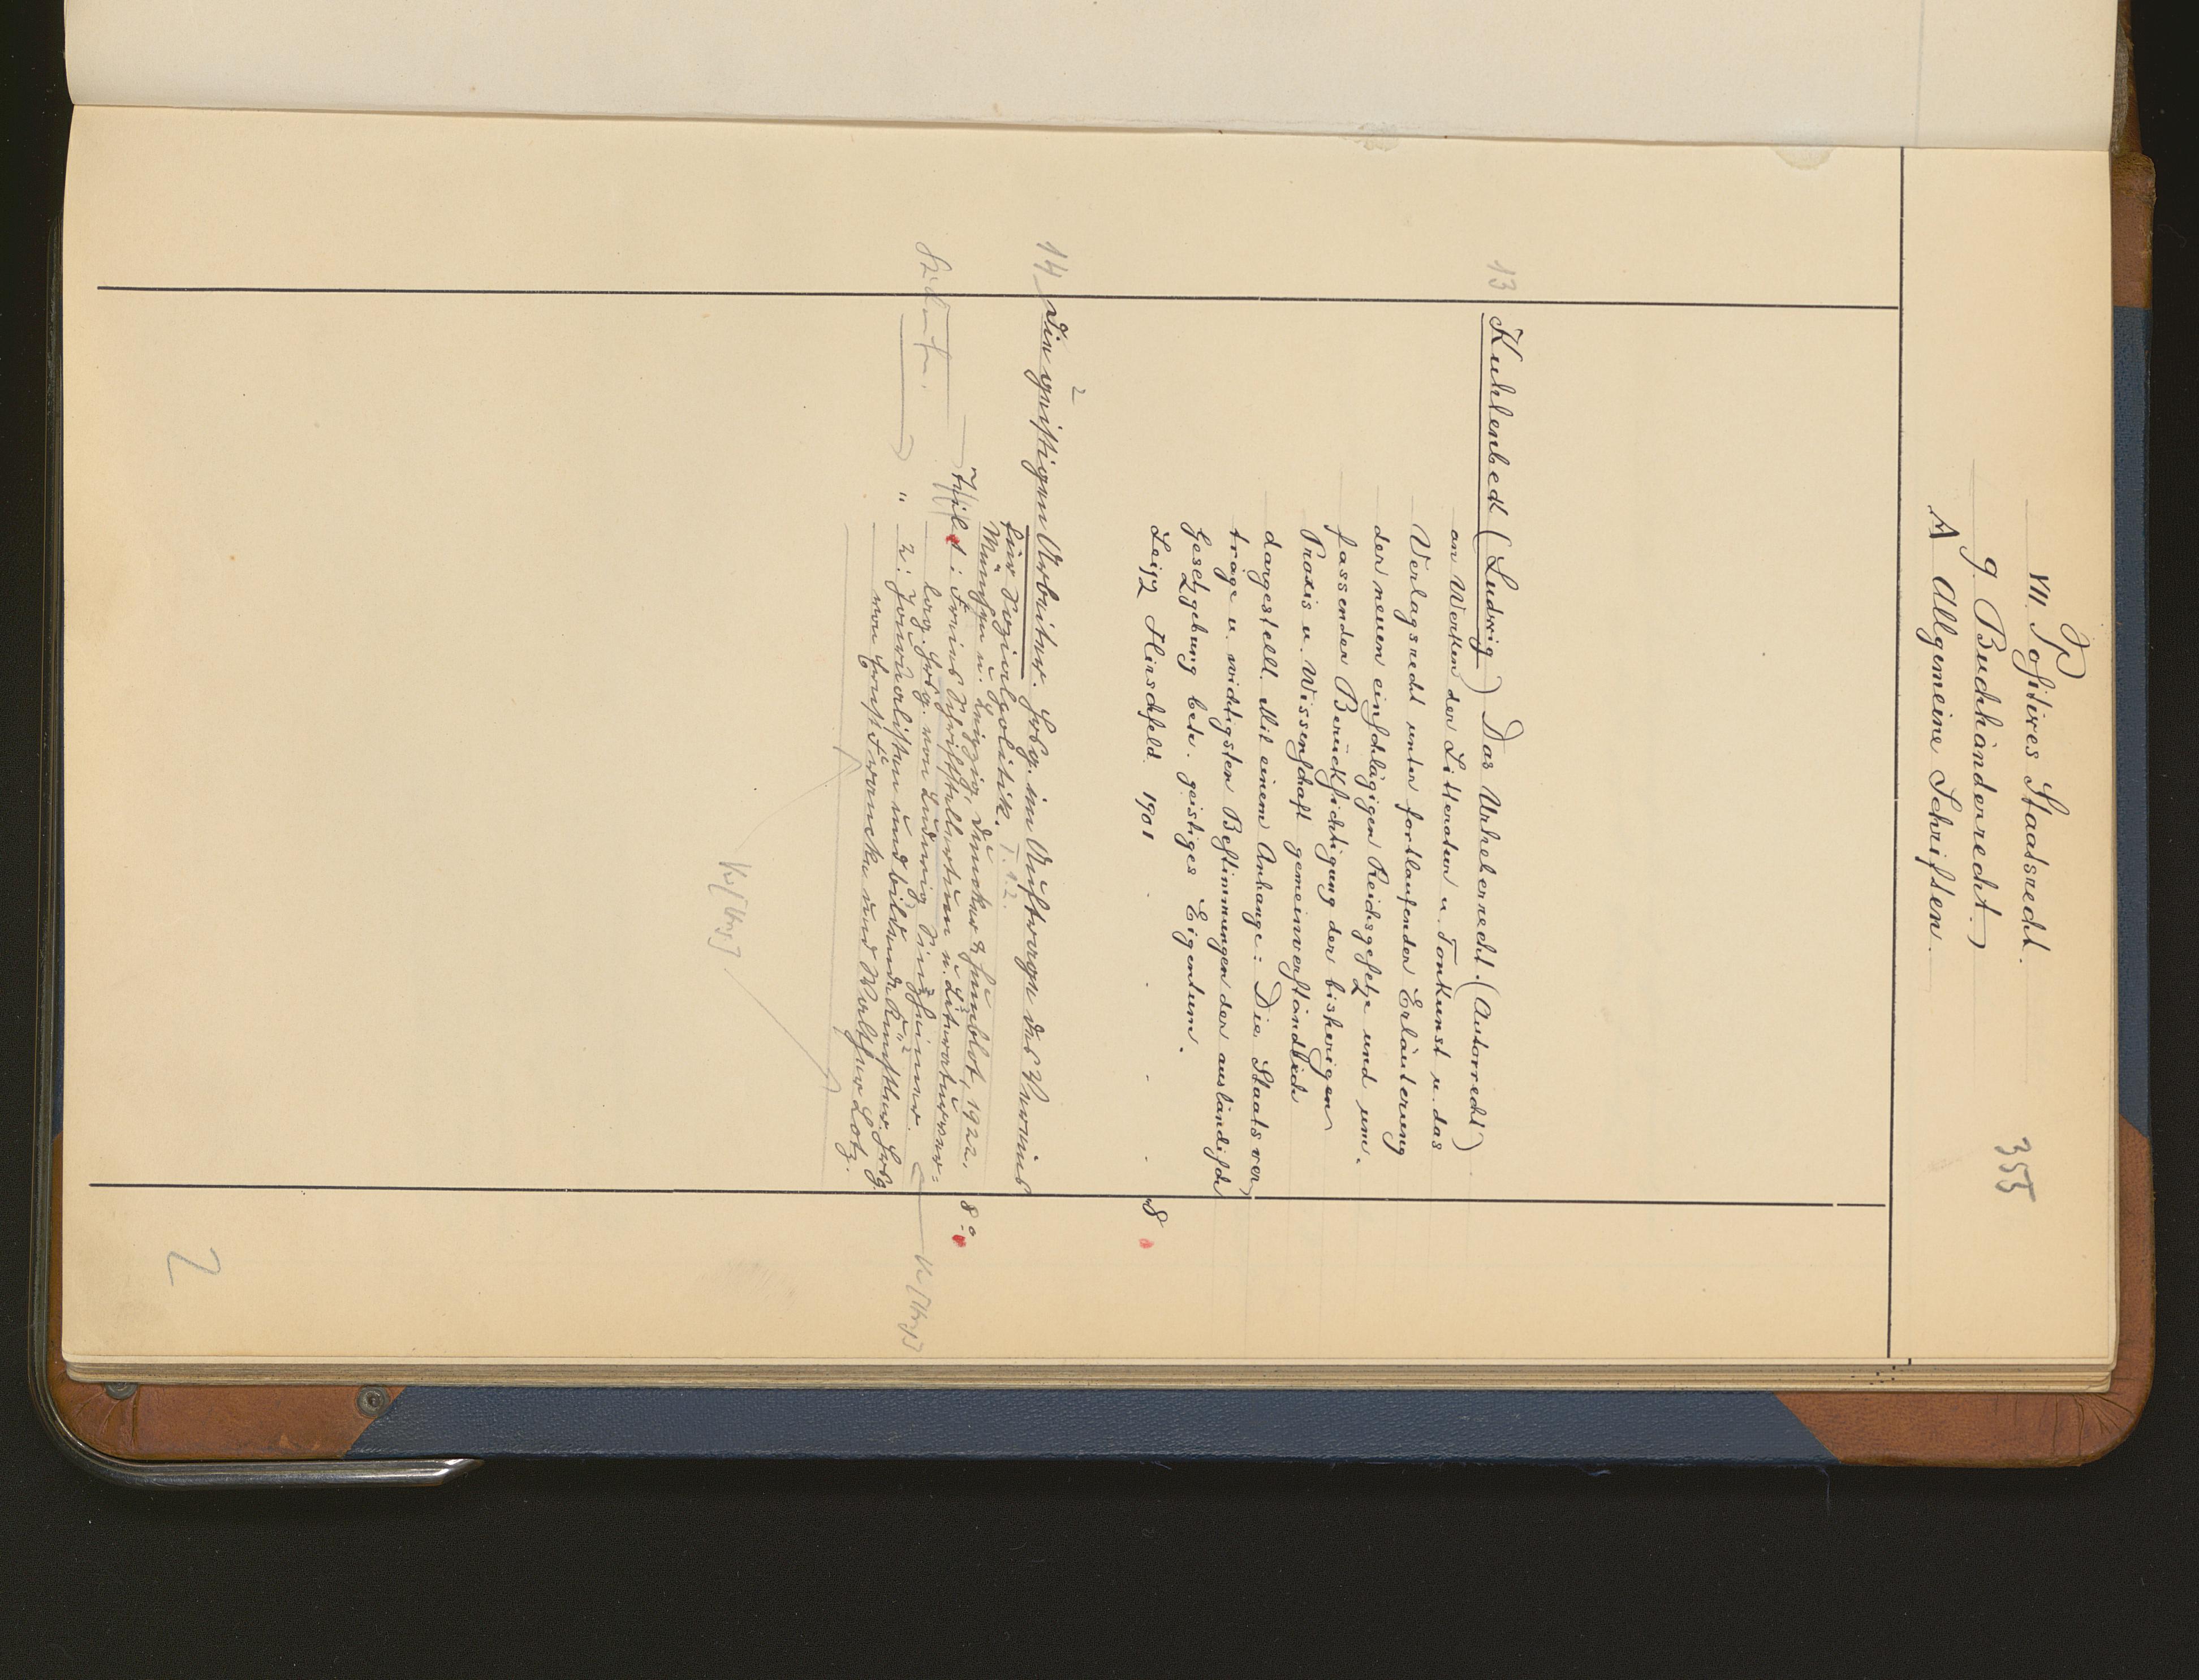 Jp
VII. Positives Staatsrecht.
355
g. Buchhändlerrecht
A Allgemeine Schriften.
13 Kuhlenbeck (Ludwig) Das Urheberrecht. (Autorrecht)
an Werken der Litteratur u. Tonkunst u. das
Verlagsrecht unter fortlaufender Erläuterung
der neuen einschlägigen Reichsgesetze und um-
fassender Berücksichtigung der bisherigen
Praxis u. Wissenschaft gemeinverständlich
dargestellt. Mit einem Anhange: Die Staatsver
träge u. wichtigsten Bestimmungen der ausländische
Gesetzgebung betr. geistiges Eigentum.
Leipz Hirschfeld. 1901 . . . . 8
2
14 Die geistigen Arbeiter. Hrsg. im Auftrage des Vereins
für Sozialpolitik. T. 1. 2.
München u. Leipzig, Duncker & Humblot, 1922. 8°.
Teil 1: Freies Schriftstellertum u. Literaturver-
lag. Hrsg. von Ludwig Sinzheimer.
" 2: Journalisten und bildende Künstler. Hrsg.
von Ernst Francke und Walther Lotz.
2